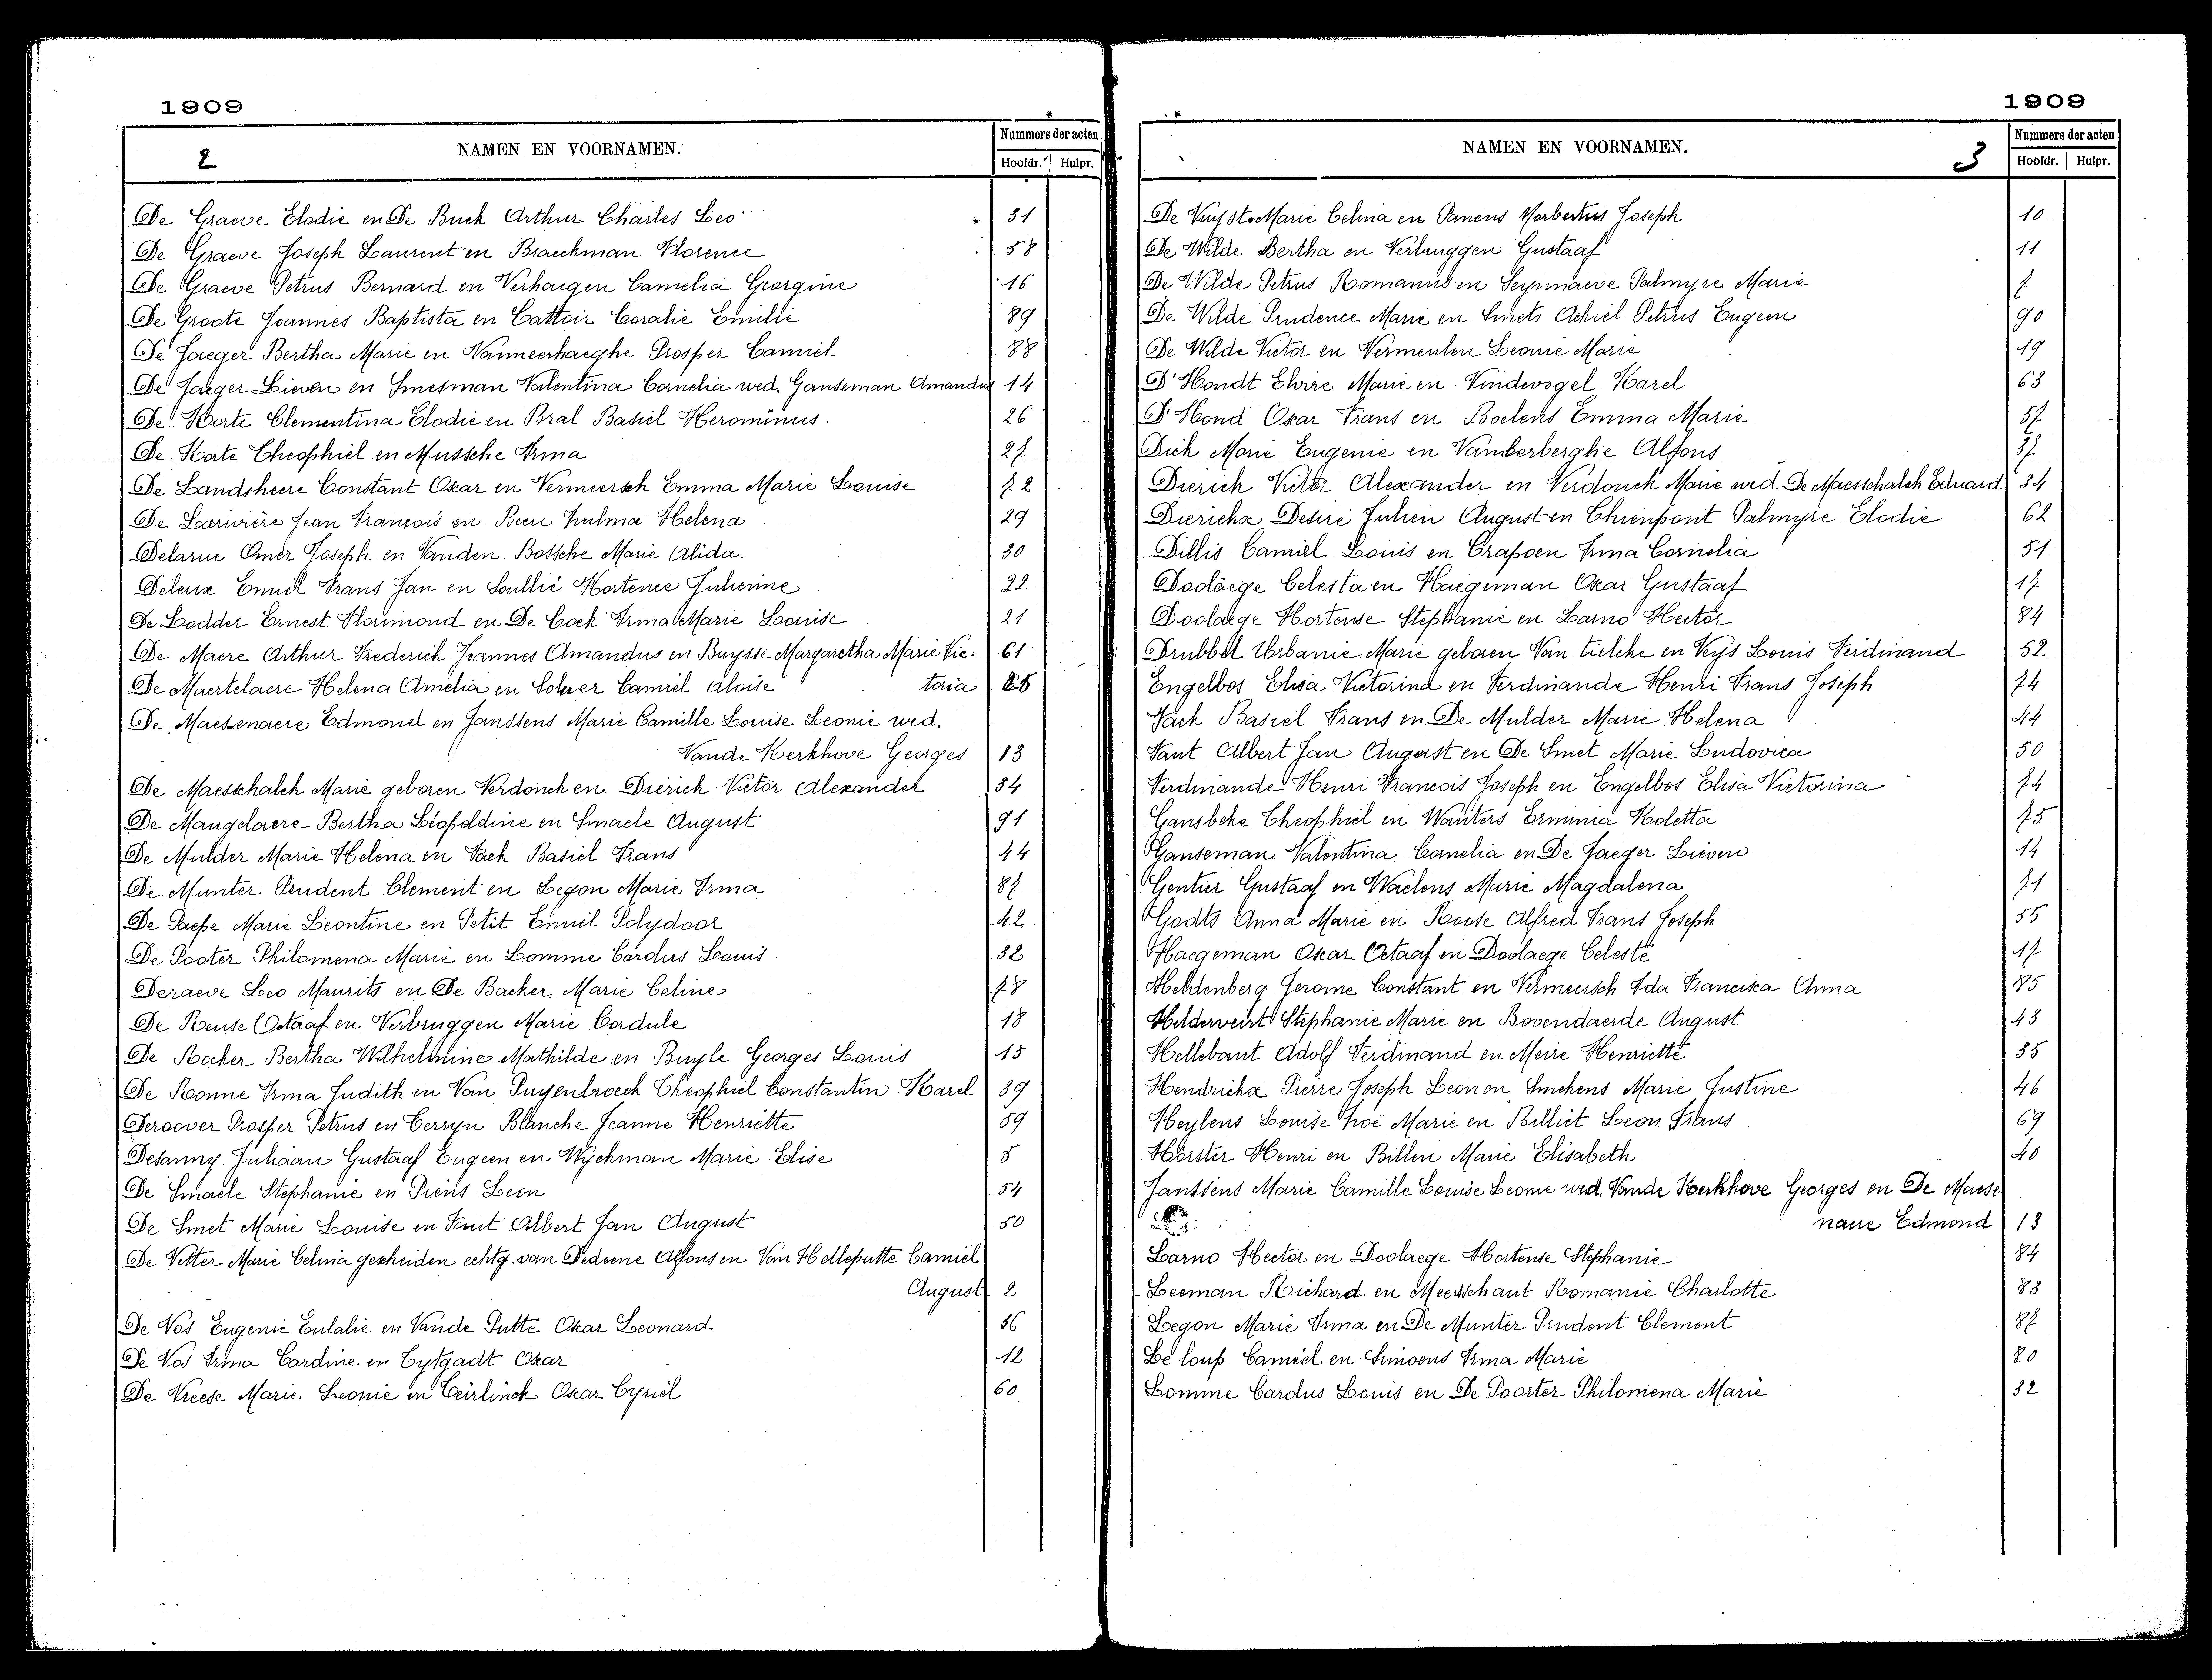 1909
2
NAMEN EN VOORNAMEN.
Nummers der acten
Hoofdr. Hulpr.
De Graeve Elodie en De Buck Arthur Charles Leo 31
De Graeve Joseph Laurent en Braeckman Florence 58
De Graeve Petrus Bernard en Verhaegen Camelia Georgine 16
De Groote Joannes Baptista en Cattoir Coralie Emilie 89
De Jaeger Bertha Marie en Vanmeerhaeghe Prosper Camiel 88
De Jaeger Lieven en Smesman Valentina Cornelia wed. Ganseman Amandus 14
De Korte Clementina Elodie en Bral Basiel Herominus 26
De Korte Theophiel en Mussche Irma 27
De Landsheere Constant Oscar en Vermeersch Emma Marie Louise 72
De Larivière Jean François en Becu Zulma Helena 29
Delarue Omer Joseph en Vanden Bossche Marie Alida 30
Deleux Emiel Frans Jan en Soullié Hortence Julienne 22
De Lodder Ernest Florimond en De Cock Irma Marie Louise 21
De Maere Arthur Frederick Joannes Amandus en Buysse Margaretha Marie Vic- 61
De Maertelaere Helena Amelia en Sohier Camiel Aloise toria 25
De Maesenaere Edmond en Janssens Marie Camille Louise Leonie wed.
Vande Kerkhove Georges 13
De Maesschalck Marie geboren Verdonck en Dierick Victor Alexander 34
De Maugelaere Bertha Léopoldine en Smaele August 91
De Mulder Marie Helena en Fack Basiel Frans 44
De Munter Prudent Clement en Legon Marie Irma 87
De Paepe Marie Leontine en Petit Emiel Polydoor 42
De Pooter Philomena Marie en Lomme Cardus Louis 32
Deraeve Leo Maurits en De Backer Marie Celine 78
De Reuse Octaaf en Verbruggen Marie Cordule 18
De Rocker Bertha Wilhelmine Mathilde en Buyle Georges Louis 15
De Ronne Irma Judith en Van Puyenbroeck Theophiel Constantin Karel 39
Deroover Prosper Petrus en Cerryn Blanche Jeanne Henriette 59
Desanny Juliaan Gustaaf Eugeen en Wyckman Marie Elise 5
De Smaele Stephanie en Piens Leon 54
De Smet Marie Louise en Fant Albert Jan August 50
De Vetter Marie Celina gescheiden echtg. van Dedoene Alfons en Van Helleputte Camiel
August 2
De Vos Eugenie Eulalie en Vande Putte Oscar Leonard 36
De Vos Irma Cardine en Cytgadt Oscar 12
De Vreese Marie Leonie en Ceirlinck Oscar Cyriel 60
1909
NAMEN EN VOORNAMEN.
3
Nummers der acten
Hoofdr. Hulpr.
De Vuyst Marie Celina en Panens Norbertus Joseph 10
De Wilde Bertha en Verbruggen Gustaaf 11
De Wilde Petrus Romanus en Seynnaeve Palmyre Marie 7
De Wilde Prudence Marie en Smets Achiel Petrus Eugeen 90
De Wilde Victor en Vermeulen Leonie Marie 19
D'Hondt Elvire Marie en Vindevogel Karel 63
D'Hond Oscar Frans en Boelens Emma Marie 57
Dick Marie Eugenie en Vanderberghe Alfons 37
Dierick Victor Alexander en Verdonck Marie wed. De Maesschalck Eduard 34
Dierickx Desiré Julien August en Chienpont Palmyre Elodie 62
Dillis Camiel Louis en Crapoen Irma Cornelia 51
Doolaege Celesta en Haegeman Oscar Gustaaf 17
Doolaege Hortense Stephanie en Larno Hector 84
Drubbel Urbanie Marie geboren Van Tielcke en Veys Louis Ferdinand 52
Engelbos Elisa Victorina en Ferdinande Henri Frans Joseph 74
Fack Basiel Frans en De Mulder Marie Helena 44
Fant Albert Jan August en De Smet Marie Ludovica 50
Ferdinande Henri Francois Joseph en Engelbos Elisa Victorina 74
Gansbeke Theophiel en Wauters Erminia Koletta 75
Ganseman Valentina Cornelia en De Jaeger Lieven 14
Gentier Gustaaf en Waelens Marie Magdalena 71
Godts Anna Marie en Roose Alfred Frans Joseph 55
Haegeman Oscar Octaaf en Doolaege Celeste 17
Heldenberg Jerome Constant en Vermeersch Ida Francisca Anna 85
Helderveirt Stephanie Marie en Bovendaerde August 43
Hellebaut Adolf Ferdinand en Meire Henriette 35
Hendrickx Pierre Joseph Leon en Smekens Marie Justine 46
Heylens Louise Zoë Marie en Billiet Leon Frans 69
Horster Henri en Billen Marie Elisabeth 40
Janssens Marie Camille Louise Leonie wed. Vande Kerkhove Georges en De Maese
naere Edmond 13
Larno Hector en Doolaege Hortense Stephanie 84
Leeman Richard en Meersschaut Romanie Charlotte 83
Legon Marie Irma en De Munter Prudent Clement 87
Le loup Camiel en Simoens Irma Marie 80
Lomme Cardus Louis en De Poorter Philomena Marie 32